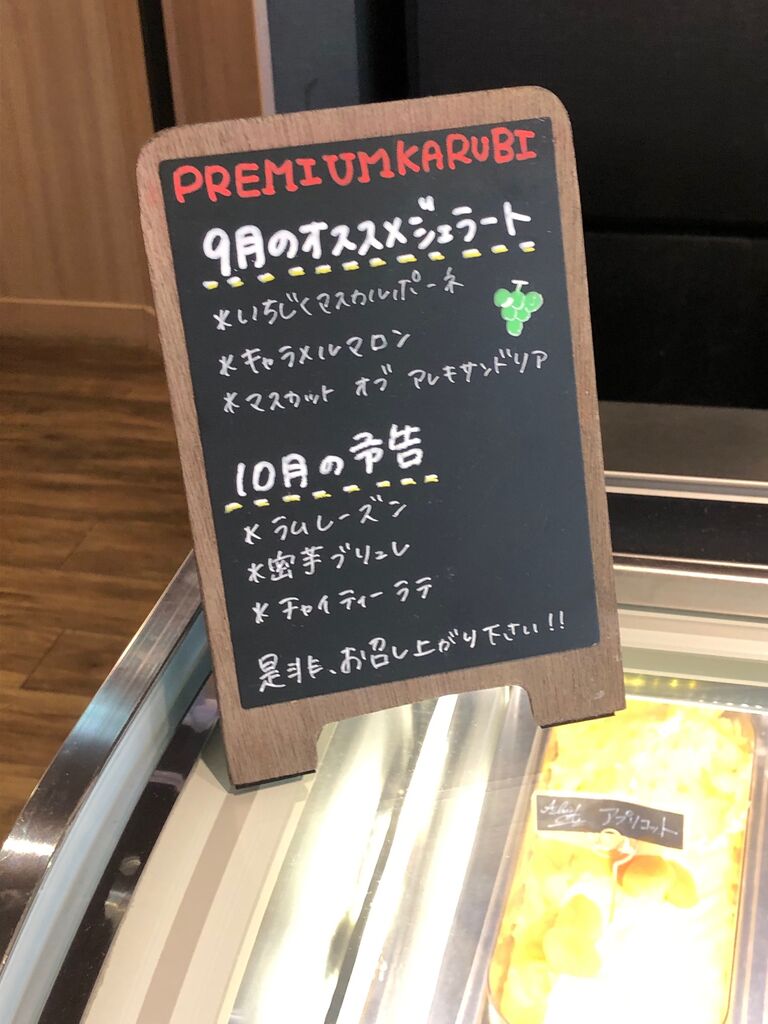 PREMIUMKARUBI
9月のオススメジェラート
*いちじくマスカルポーネ
*キャラメルマロン
*マスカット オブ アレキサンドリア
10月の予告
*ラムレーズン
*蜜芋ブリュレ
*チャイティーラテ
是非、お召し上がり下さい!!
アプリコット